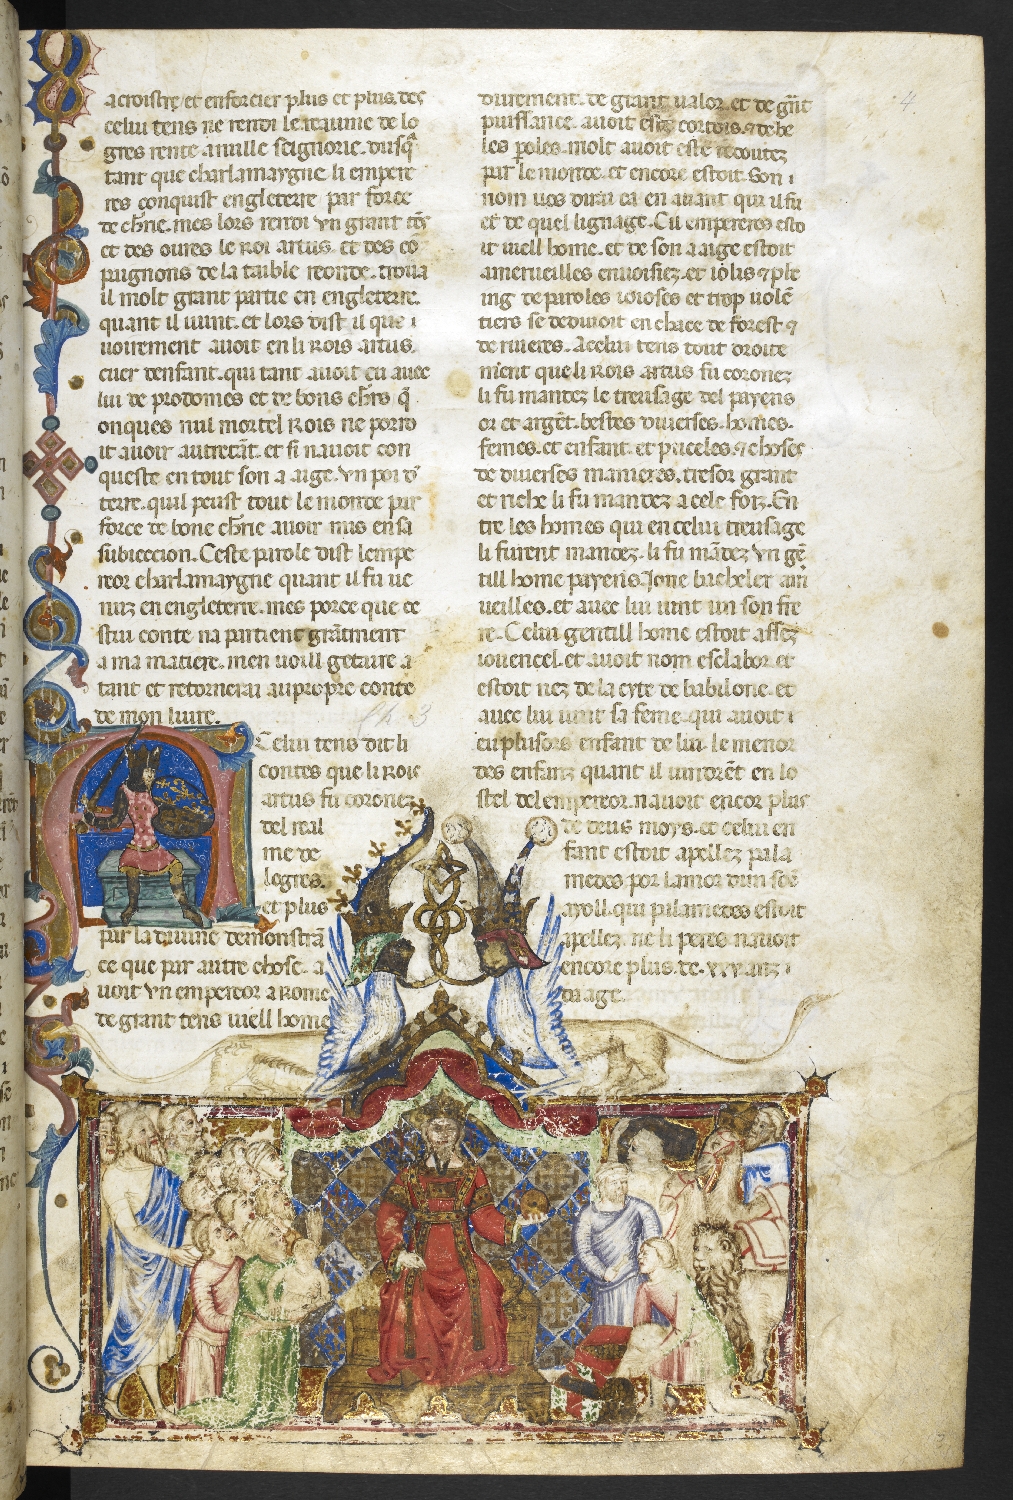 acroistre et enforcier plus et plus. des
celui tens ne rendi le reaume de lo
gres rente a nulle seignorie. dusq̃
tant que charlamaygne li empere
res conquist engleterre par force
de ch̃rie. mes lors rendi vn grant
et des oures le roi artus. et des cõ
pugnons de la table reonde. troua
il molt grant partie en engleterre.
quant il uint. et lors dist il que
uoirement auoit en li rois artus.
cuer denfant. qui tant auoit eu auec
lui de prodomes et de bons ch̃rs q̃
onques nul mortel Rois ne porro
it auoir autretãt. et si nauoit con
queste en tout son aaige. vn poi d
terre. quil peust tout le monde par
force de bone ch̃rie auoir mis en sa
subieccion. Ceste parole dist lempe
reor charlamaygne quant il fu ue
nuz en engleterre. mes porce que ce
stui conte na partient grãtment
a ma matiere. men uoill getaire a
tant et retornerai au propre conte
de mon liure.
ch 3
A Celui tens dit li
contes que li rois
artus fu coronez
del real
me de
logres.
et plus
par la diuine demonstrã
ce que par autre chose. a
uoit vn empereor a Rome
de grant tens uiell home
4
durement. de grant ualor et de grñt
puissance. auoit este cortois. ⁊ de be
les poles. molt auoit este redoutez
par le monde. et encore estoit. Son
nom uos dirai ca en auant qui il fu
et de quel lignage. Cil empereres esto
it uiell home. et de son aaige estoit
amerueilles enuoisiez. et iolis ⁊ ple
ing de paroles ioioses et trop uolẽ
tiers se deduioit en chace de forest ⁊
de riuieres. A celui tens tout droite
ment que li Rois artus fu coronez
li fu mandez le treusage del payens
or et argẽt. bestes diuerses. homes.
femes. et enfant. et puceles. ⁊ choses
de diuerses manieres. tresor grant
et riche li fu mandez a cele foiz. En
tre les homes qui en celui treusage
li furent mandez. li fu mãdez vn gẽ
till home payens. Ione bacheler am
ueilles. et auec lui uint un son fre
re. Celui gentill home estoit assez
iouencel. et auoit nom esclabor. et
estoit nez de la cyte de babilone. et
auec lui uint sa feme. qui auoit
eu plusors enfant de lui. le menor
des enfanz quant il uindrẽt en lo
stel del empereor. nauoit encor plus
de deus moys. et celui en
fant estoit apellez pala
medes por lamor dun sõ
ayoll. qui palamedes estoit
apellez. ne li peres nauoit
encore plus de .xxx. anz
da age.